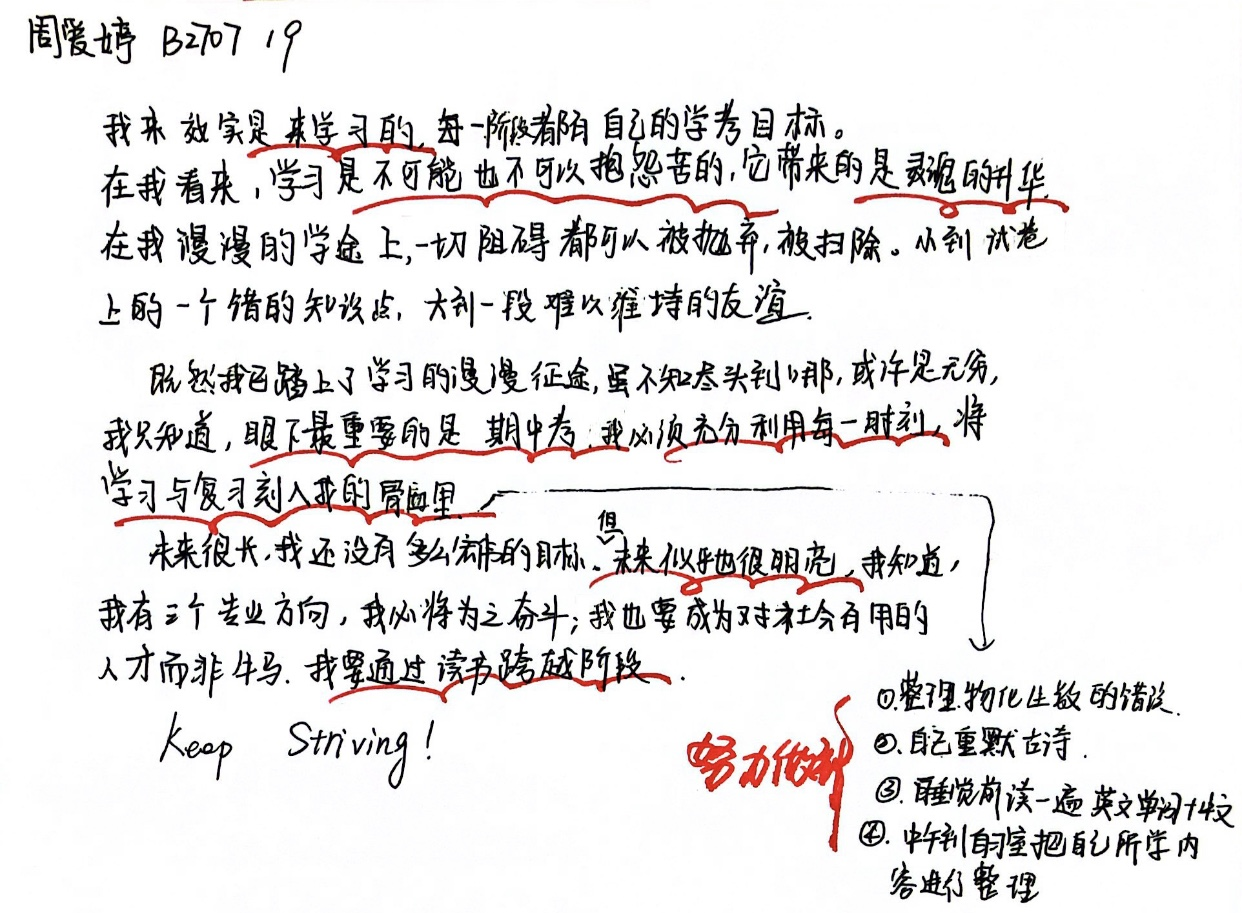 周爱婷 B2707 19
我来效实是来学习的,每一阶段都有自己的学考目标。
在我看来,学习是不可能也不可以抱怨苦的,它带来的是灵魂的升华.
在我漫漫的学途上,一切阻碍都可以被抛弃,被扫除。从到试卷
上的一个错的知识点,大到一段难以维持的友谊.
既然我已踏上了学习的漫漫征途,虽不知尽头到哪,或许是无穷,
我只知道,眼下最重要的是期中考.我必须充分利用每一时刻,将
学习与复习刻入我的骨血里.
未来很长,我还没有多么宏伟的目标.但未来似乎也很明亮,我知道,
我有三个专业方向,我必将为之奋斗;我也要成为对社会有用的
人才而非牛马.我要通过读书跨越阶段.
Keep Striving!
努力做到
①.整理物化生数的错误.
②.自己重默古诗.
③.睡觉前读一遍英文单词+作文
④.中午到自习室把自己所学内
容进行整理